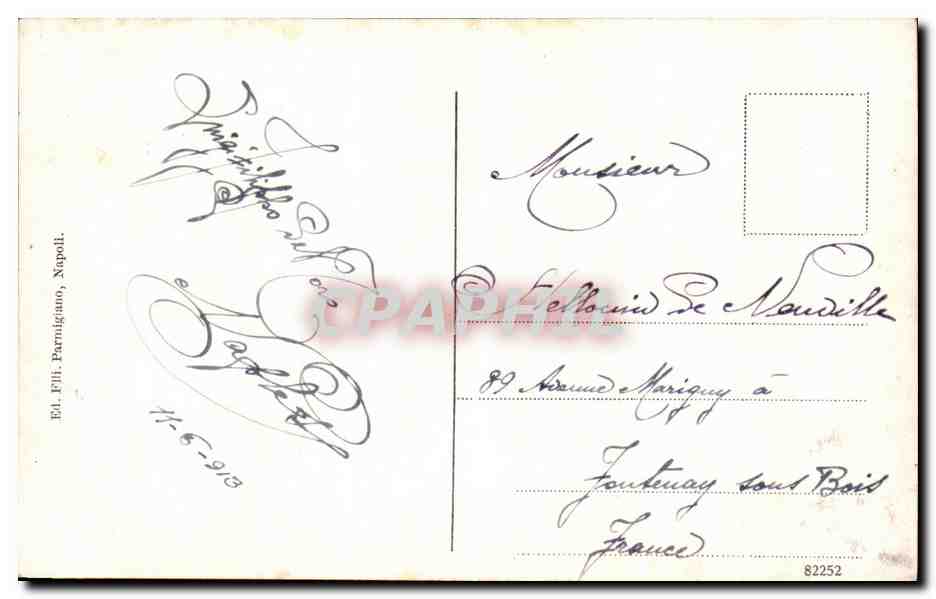 Ed. F'lli. Parmigiano, Napoli.
Naples
11-6-913
Monsieur
De Neuville
89 Avenue Marigny à
Fontenay sous Bois
France
82252
CPAPHIL